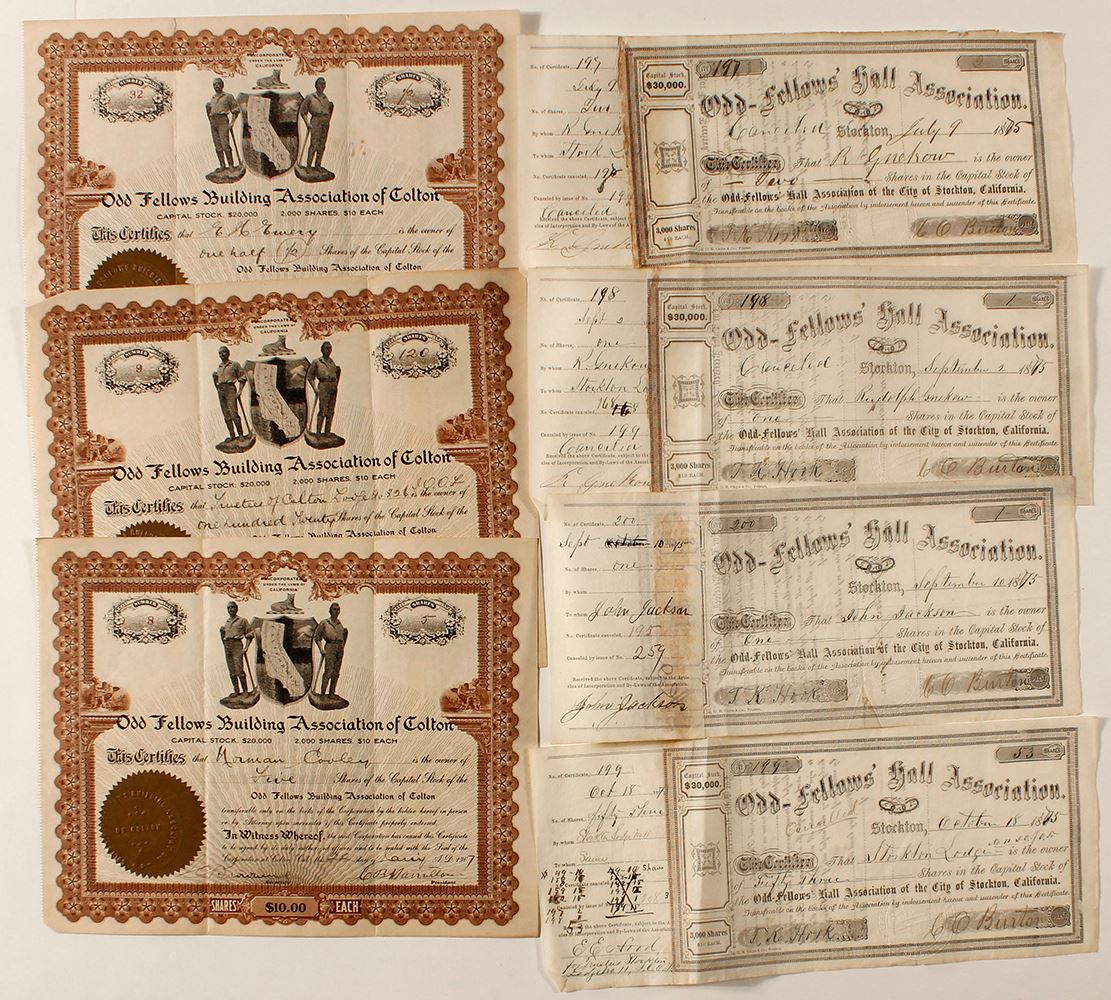 NUMBER
32
SHARES
1/2
INCORPORATED
UNDER THE LAWS OF
CALIFORNIA
Odd Fellows Building Association of Colton
CAPITAL STOCK. $20,000 2,000 SHARES. $10 EACH
This Certifies that is the owner of
One half (1/2) Shares of the Capital Stock of the
Odd Fellows Building Association of Colton
NUMBER
9
SHARES
120
INCORPORATED
UNDER THE LAWS OF
CALIFORNIA
Odd Fellows Building Association of Colton
CAPITAL STOCK. $20,000 2,000 SHARES. $10 EACH
This Certifies that Trustees of Colton Lodge No 326 I.O.O.F. is the owner of
One hundred Twenty Shares of the Capital Stock of the
Odd Fellows Building Association of Colton
NUMBER
8
SHARES
5
INCORPORATED
UNDER THE LAWS OF
CALIFORNIA
Odd Fellows Building Association of Colton
CAPITAL STOCK. $20,000 2,000 SHARES. $10 EACH
This Certifies that Norman Cooley is the owner of
Five Shares of the Capital Stock of the
Odd Fellows Building Association of Colton
transferable only on the books of the Corporation by the holder hereof in person
or by Attorney upon surrender of this Certificate properly endorsed.
In Witness Whereof, the said Corporation has caused this Certificate
to be signed by its duly authorized officers and to be sealed with the Seal of the
Corporation at Colton day of A.D. 1907
C B Hamilton
President
SHARES $10.00 EACH
No. of Certificate, 197
July 9
No. of Shares, Two
By whom R Gnek
To whom Stock L
No. Certificate canceled, 195
Canceled by issue of No. 199
Canceled
Capital Stock,
$30,000.
3,000 Shares
$10 EACH.
197
SHARES
Odd-Fellows' Hall Association.
Canceled Stockton, July 9 1875
This Certifies That R Gnekow is the owner
of Two Shares in the Capital Stock of
the Odd-Fellows' Hall Association of the City of Stockton, California.
Transferable on the books of the Association by indorsement hereon and surrender of this Certificate.
T. K. Hook C O Burton
No. of Certificate, 198
Sept 2
No. of Shares, One
By whom R. Gnekow
To whom Stockton Lo
No. Certificate canceled, 168
Canceled by issue of No. 199
Canceled
R Gnekow
Capital Stock,
$30,000.
3,000 Shares
$10 EACH.
198
1 SHARES
Odd-Fellows' Hall Association.
Canceled Stockton, September 2 1875
This Certifies That Rudolph Gnekow is the owner
of One Shares in the Capital Stock of
the Odd-Fellows' Hall Association of the City of Stockton, California.
Transferable on the books of the Association by indorsement hereon and surrender of this Certificate.
T. K. Hook C O Burton
No. of Certificate, 200
Sept 10 75
No. of Shares, One
By whom
To whom John Jackson
No. Certificate canceled, 195
Canceled by issue of No. 259
Received the above Certificate, subject to the Arti-
cles of Incorporation and By-Laws of the Association.
John Jackson
200
1 SHARES
Odd-Fellows' Hall Association.
Stockton, September 10 1875
This Certifies That John Jackson is the owner
of One Shares in the Capital Stock of
the Odd-Fellows' Hall Association of the City of Stockton, California.
Transferable on the books of the Association by indorsement hereon and surrender of this Certificate.
T. K. Hook C O Burton
No. of Certificate, 199
Oct 18
No. of Shares, Fifty Three
To whom Same
Capital Stock,
$30,000.
3,000 Shares
$10 EACH.
199
53 SHARES
Odd-Fellows' Hall Association.
Cancelled Stockton, October 18 1875
This Certifies That Stockton Lodge No 11 I.O.O.F. is the owner
of Fifty Three Shares in the Capital Stock of
the Odd-Fellows' Hall Association of the City of Stockton, California.
Transferable on the books of the Association by indorsement hereon and surrender of this Certificate.
T. K. Hook C O Burton